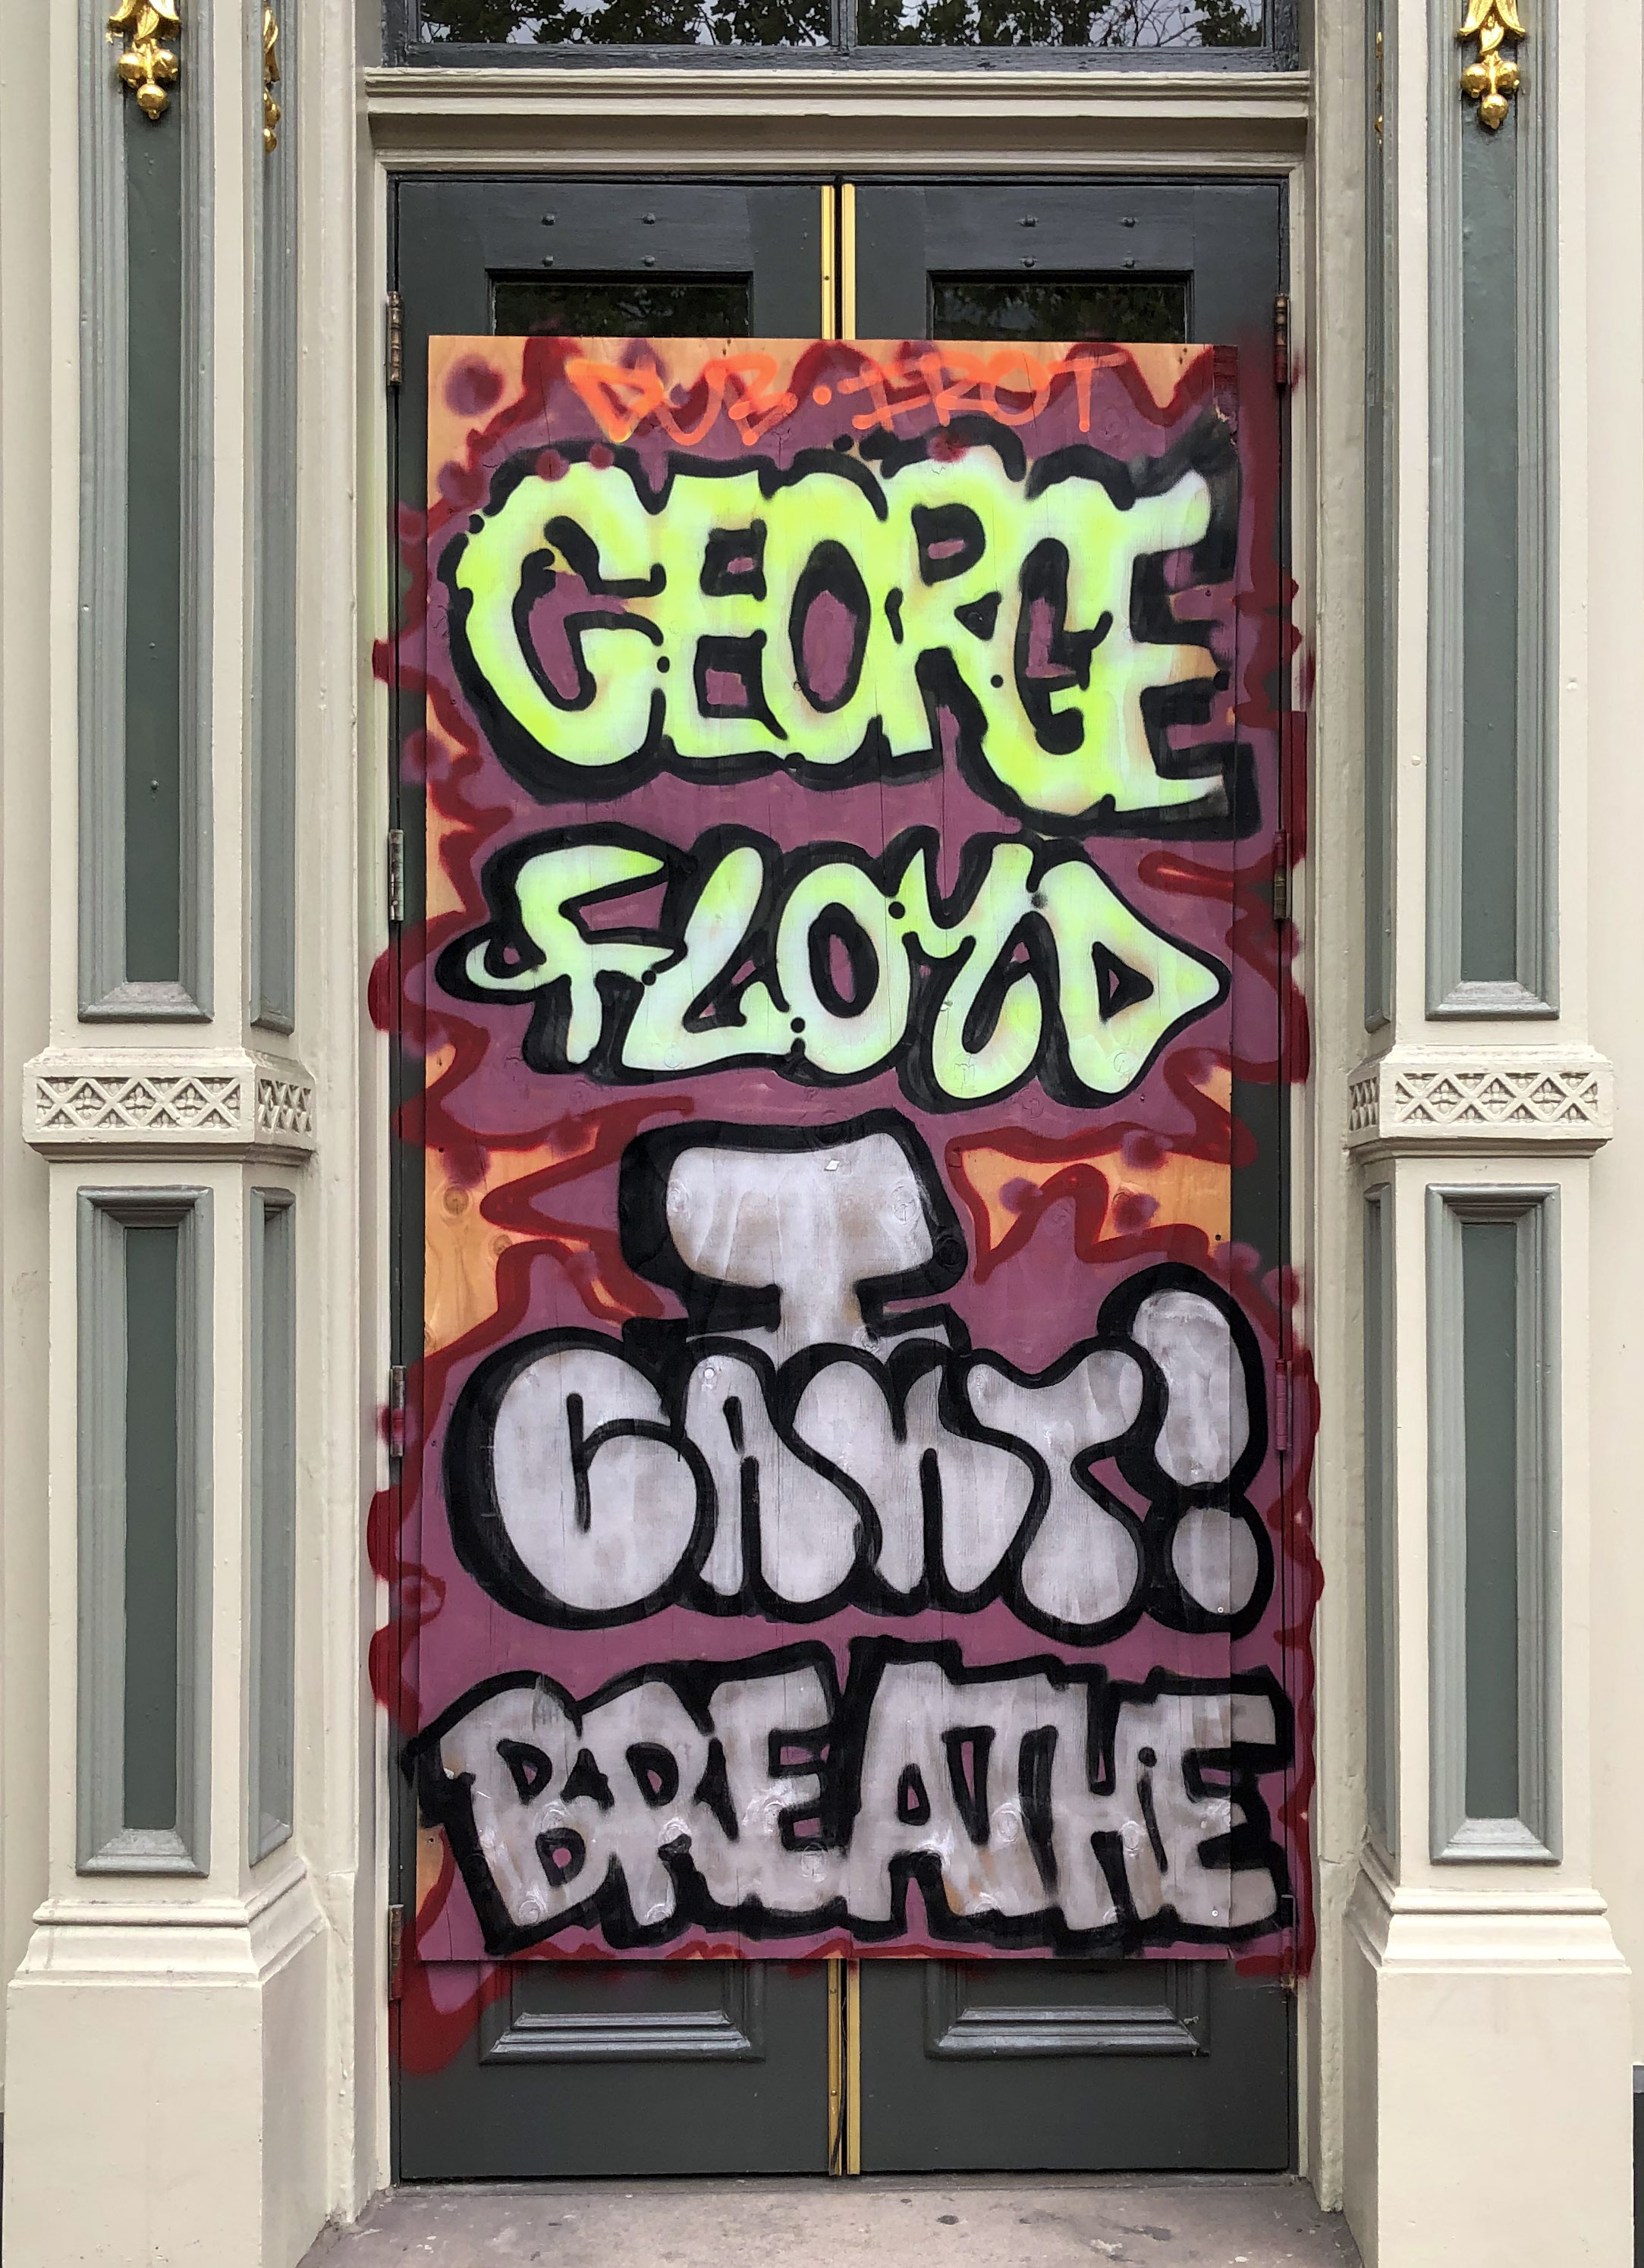 DUB·IROT
GEORGE
FLOYD
I
CANT!
BREATHE